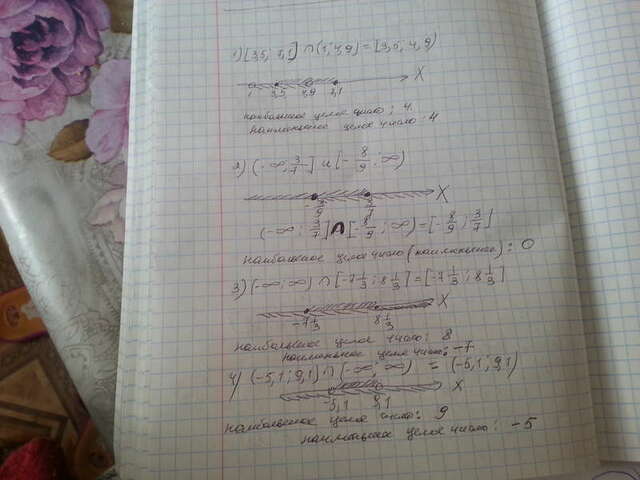 1) [3,5; 7,1] ∩ (1; 4,9) = [3,5; 4,9)
1 3,5 4,9 7,1 X
наибольшее целое число: 4
наименьшее целое число: 4
2) (-∞; 3/7] и [-8/9; ∞)
-8/9 3/7 X
(-∞; 3/7] ∩ [-8/9; ∞) = [-8/9; 3/7]
наибольшее целое число (наименьшее): 0
3) (-∞; ∞) ∩ [-7 1/3; 8 1/3] = [-7 1/3; 8 1/3]
-7 1/3 8 1/3 X
наибольшее целое число: 8
наименьшее целое число: -7
4) (-5,1; 9,1) ∩ (-∞; ∞) = (-5,1; 9,1)
-5,1 9,1 X
наибольшее целое число: 9
наименьшее целое число: -5